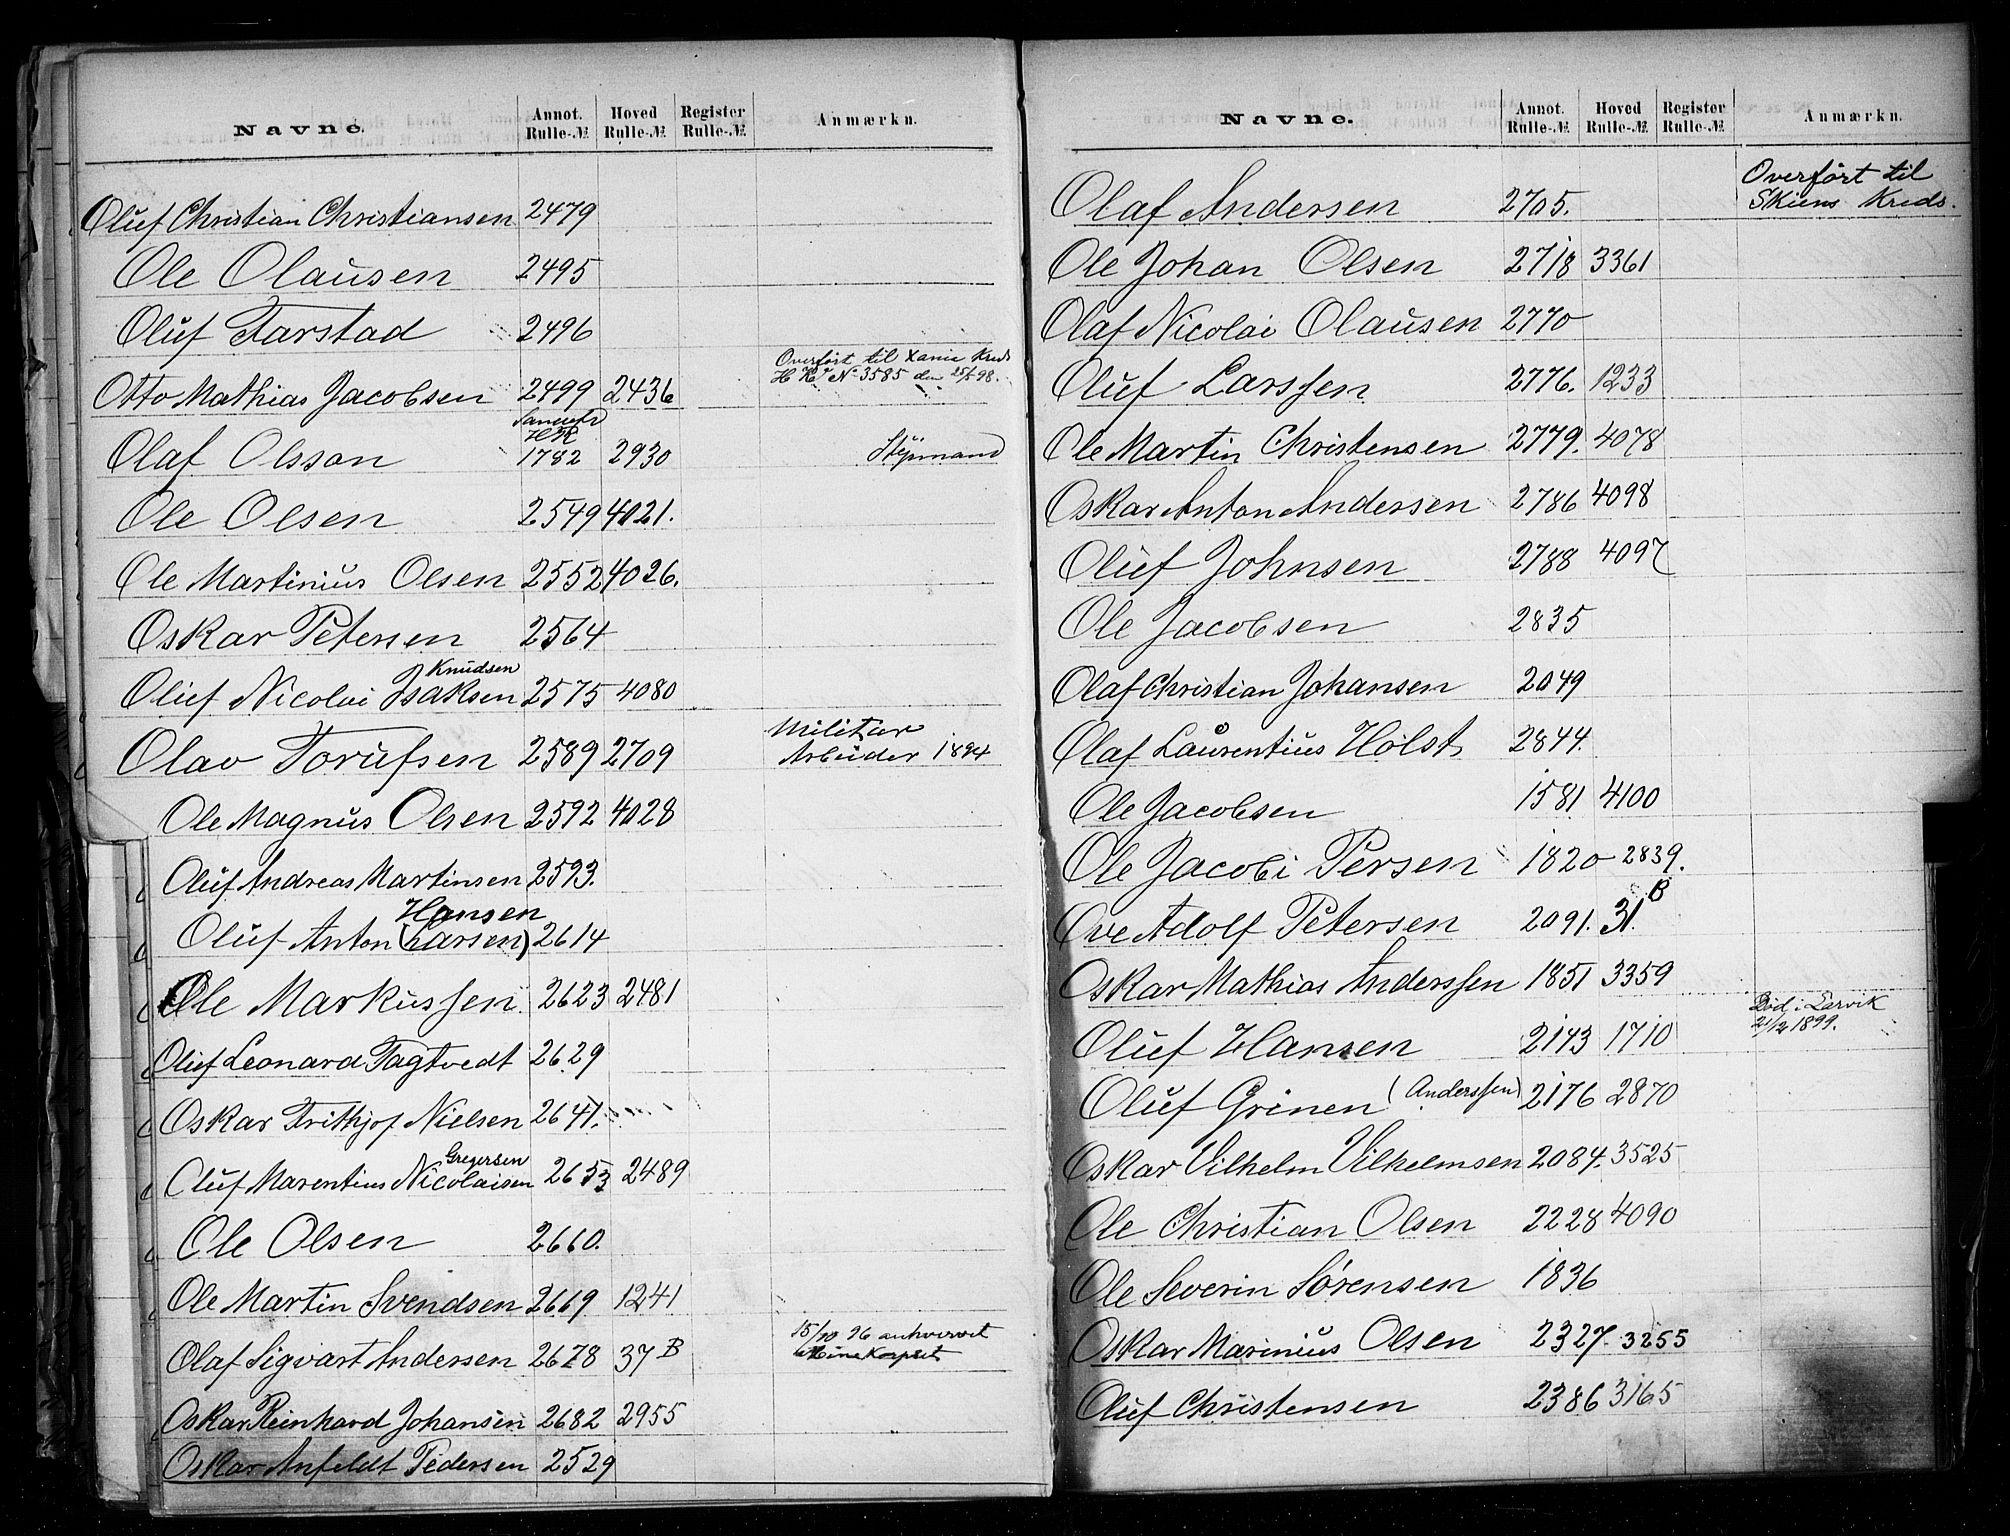 Navne. Annot. Rulle-№ Hoved Rulle-№ Register Rulle-№ Anmærkn.
Oluf Christian Christiansen 2479
Ole Olausen 2495
Oluf Farstad 2496
Otto Mathias Jacobsen 2499 2436 Overført til Xania Kreds
H R № 3585 den 25/5 98.
Olaf Olsson HR 1782 2930 Stýrmand
Ole Olsen 2549 4021.
Ole Martinius Olsen 2552 4026.
Oskar Petersen 2564
Knudsen
Oluf Nicolai Isaksen 2575 4080
Olav Torufsen 2589 2709 Militær
Arbeider 1894
Ole Magnus Olsen 2592 4028
Oluf Andreas Martinsen 2593.
Hansen
Oluf Anton (Larsen) 2614
Ole Markussen 2623 2481
Oluf Leonard Tagtvedt 2629
Oskar Frithjof Nielsen 2641.
Gregersen
Oluf Marentius Nicolaisen 2653 2489
Ole Olsen 2660.
Ole Martin Svendsen 2669 1241
Olaf Sigvart Andersen 2678 37 B 15/10 96 anhvervet
Minekorpset
Oskar Reinhard Johansen 2682 2955
Oskar Anfeldt Pedersen 2529
Navne. Annot. Rulle-№ Hoved Rulle-№ Register Rulle-№ Anmærkn.
Olaf Andersen 2705. Overført til
Skiens Kreds.
Ole Johan Olsen 2718 3361
Olaf Nicolai Olausen 2770
Oluf Larssen 2776. 1233
Ole Martin Christensen 2779. 4078
Oskar Anton Andersen 2786 4098
Oluf Johnsen 2788 4097
Ole Jacobsen 2835
Olaf Christian Johansen 2049
Olaf Laurentius Holst 2844.
Ole Jacobsen 1581 4100
Ole Jacobi Persen 1820 2839.
Ove Adolf Petersen 2091. 31. B
Oskar Mathias Anderssen 1851 3359
Oluf Hansen 2143 1710 Død i Larvik
21/12 1899.
Oluf Grinen (Anderssen) 2176 2870
Oskar Vilhelm Vilhelmsen 2084. 3525
Ole Christian Olsen 2228 4090
Ole Severin Sørensen 1836
Oskar Marinius Olsen 2327. 3255
Oluf Christensen 2386 3165